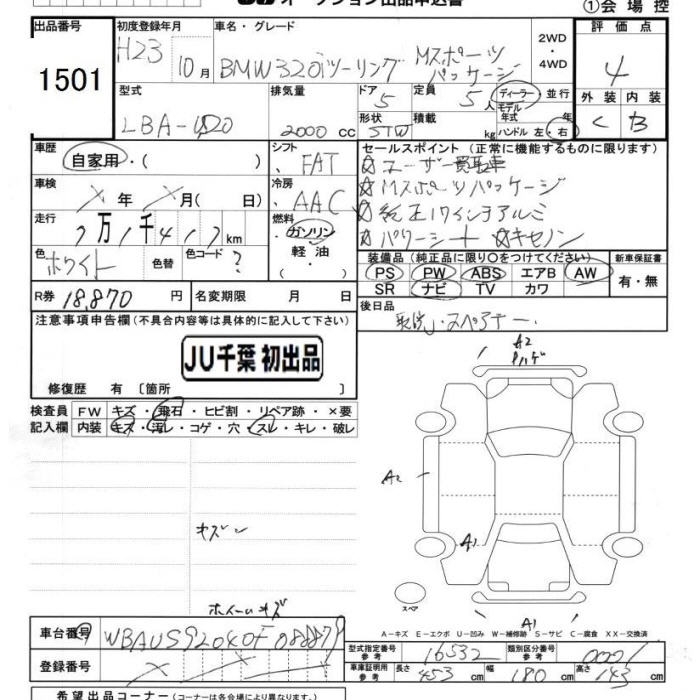 オークション出品申込書
①会場控
出品番号
1501
初度登録年月
H23 10月
車名・グレード
BMW320iツーリング Mスポーツパッケージ
2WD
・
4WD
評価点
4
型式
LBA-
排気量
2000 cc
ドア
5
定員
5人
ディーラー・並行
モデル年式 年
形状
STW
積載
kg
ハンドル 左・右
外装 内装
C B
車歴
自家用・( )
シフト
FAT
セールスポイント (正常に機能するものに限ります)
☆ユーザー買取車
☆Mスポーツパッケージ
☆純正17インチアルミ
☆パワーシート ☆キセノン
車検
年 月( 日)
冷房
AAC
走行
7万1千417km
燃料
ガソリン
軽油
・
( )
色
ホワイト
色替
色コード
?
装備品 (純正品に限り○をつけてください)
PS PW ABS エアB AW
SR ナビ TV カワ
新車保証書
有・無
R券 18,870 円
名変期限 月 日
後日品
取説、スペアキー.
注意事項申告欄 (不具合内容等は具体的に記入して下さい)
JU千葉 初出品
修復歴 有 〔箇所 〕
検査員
記入欄
FW キズ・飛石・ヒビ割・リペア跡・×要
内装 キズ・汚レ・コゲ・穴・スレ・キレ・破レ
A2
ハゲ
A2
A1
キズ
ホイールキズ
スペア
A1
A-キズ E-エクボ U-凹み W-補修跡 S-サビ C-腐食 XX-交換済
車台番号
WBAUS92040F088879
登録番号
型式指定番号
参考
16532
類別区分番号
参考
0001
車庫証明用
参考
長さ 453 cm
幅 180 cm
高さ 143 cm
希望出品コーナー (コーナーは各会場により異なります。)